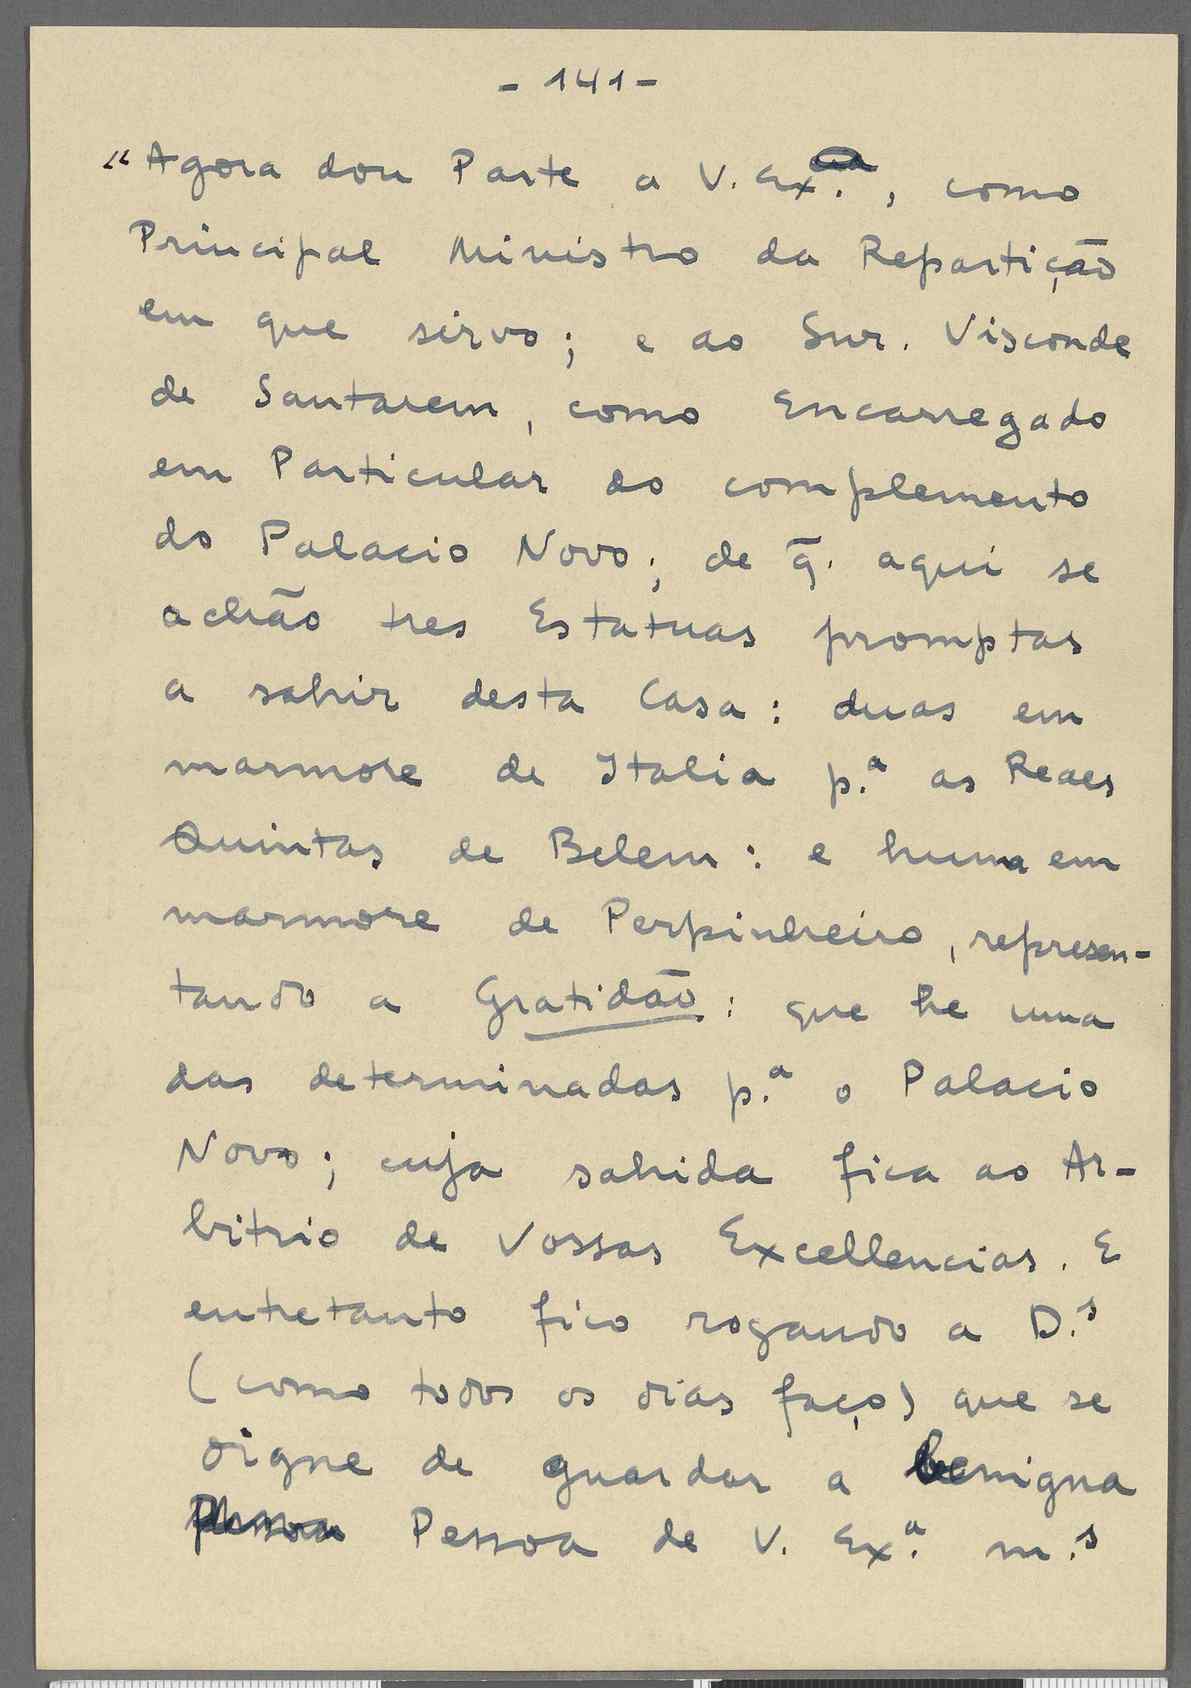 - 141 -
"Agora dou Parte a V. Ex.ª, como
Principal Ministro da Repartição
em que sirvo; e ao Snr. Visconde
de Santarem, como Encarregado
em Particular do complemento
do Palacio Novo; de q̃. aqui se
achão tres Estatuas promptas
a sahir desta Casa: duas em
marmore de Italia p.ª as Reaes
Quintas de Belem: e huma em
marmore de Perpinheiro, represen-
tando a Gratidão: que he uma
das determinadas p.ª o Palacio
Novo; cuja sahida fica ao Ar-
bitrio de Vossas Excellencias. E
entretanto fico rogando a D.s
(como todos os dias faço) que se
digne de guardar a benigna
Pessoa de V. Ex.ª m.s